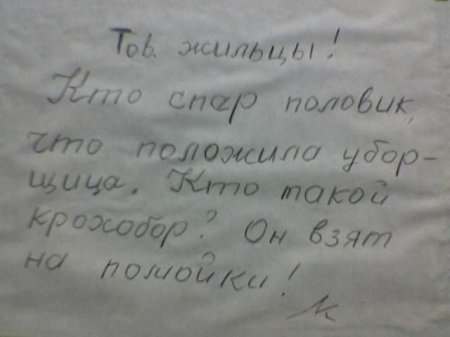 Тов. жильцы!
Кто спер половик,
что положила убор-
щица. Кто такой
крохобор? Он взят
на помойки!